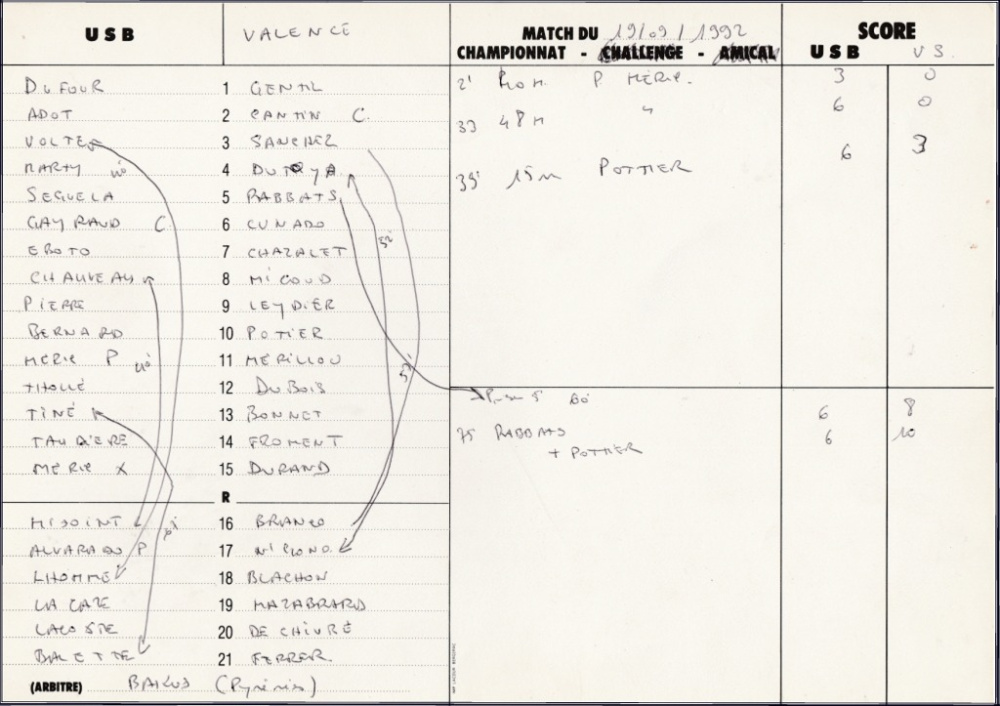 USB VALENCE MATCH DU 19/09/1992 SCORE
CHAMPIONNAT - CHALLENGE - AMICAL USB V S.
DUFOUR 1 GENTIL 2' P MERIC. 3 0
ADOT 2 CANTIN C. 33 48 M " 6 0
VOLTE 3 SANCHEZ 6 3
MARTY 4 DUTRYA 39' 15m POTTIER
SEGUELA 5 RABBATS
GAYRAUD C 6 CUNADO 52'
EBOTO 7 CHAZALET
CHAUVEAU 8 MICOUD
PIERRE 9 LEYDIER
BERNARD 10 POTIER
MERIC P 40' 11 MERILLOU
THOLLE 12 DUBOIS 60'
TINÉ 13 BONNET 6 8
TAUDIERE 14 FROMENT 75 RABBATS 6 10
MERIC X 15 DURAND + POTTIER
R
MISOINT 16 BRANCO
ALVARADO P 17
LHOMME 18 BLACHON
LACAZE 19 MAZABRARD
LACOSTE 20 DE CHIVRÉ
BALETTE 21 FERRER.
(ARBITRE) (Pyrénées)